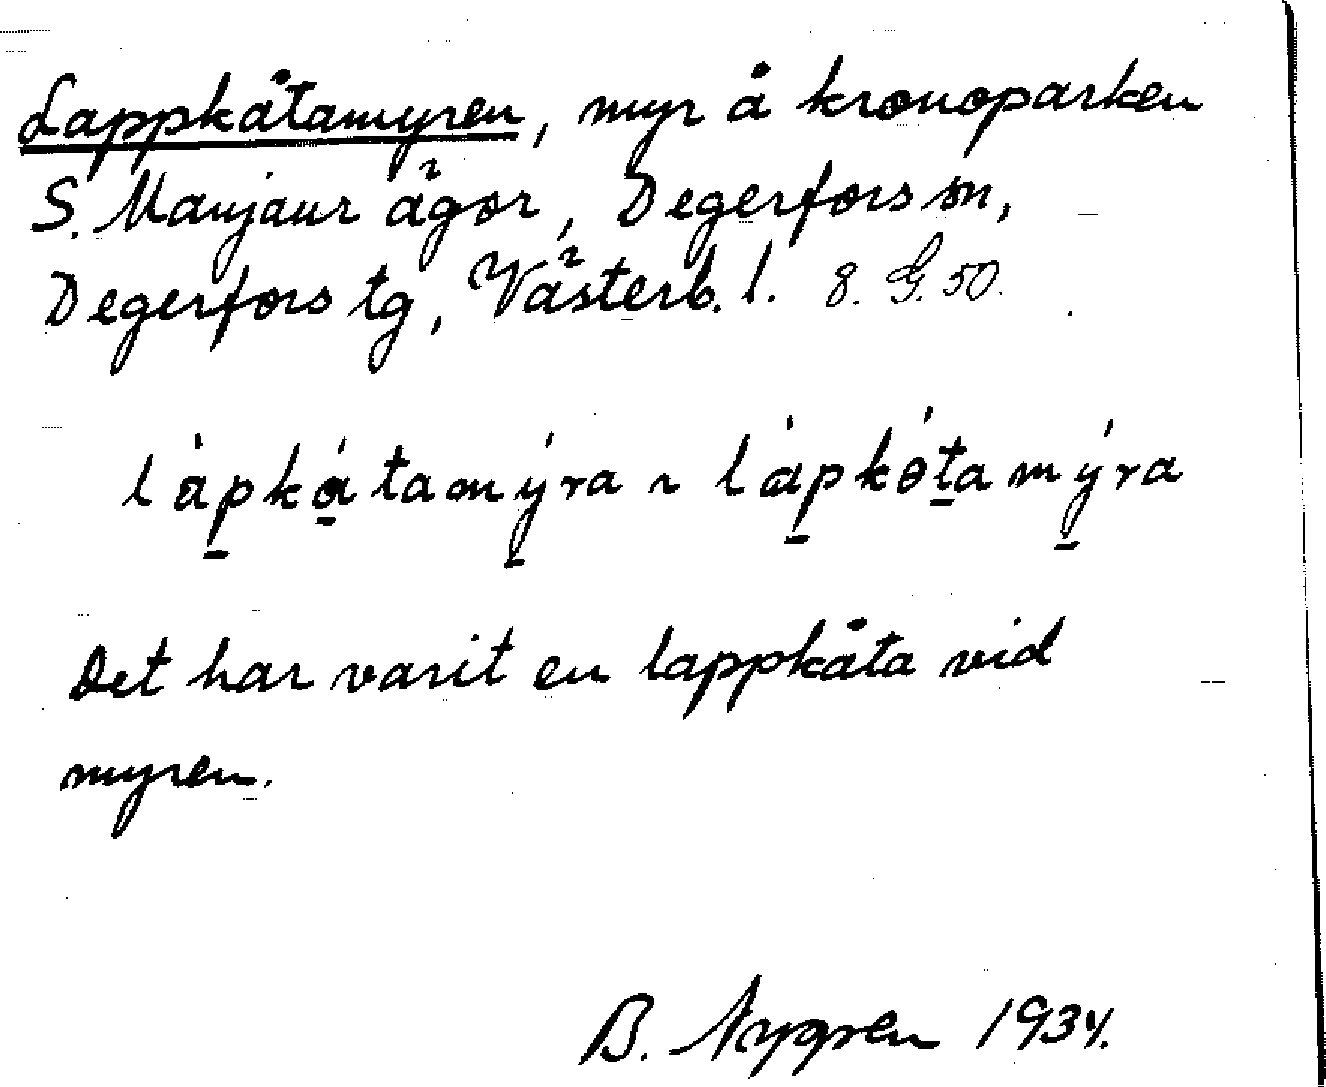 Lappkåtamyren, myr å kronoparken
S. Manjaur ägor, Degerfors sn,
Degerfors tg, Västerb. l. 8. G. 50.
låpkåtamýra ~ låpkótamýra
Det har varit en lappkåta vid
myren.
B. Nygren 1934.